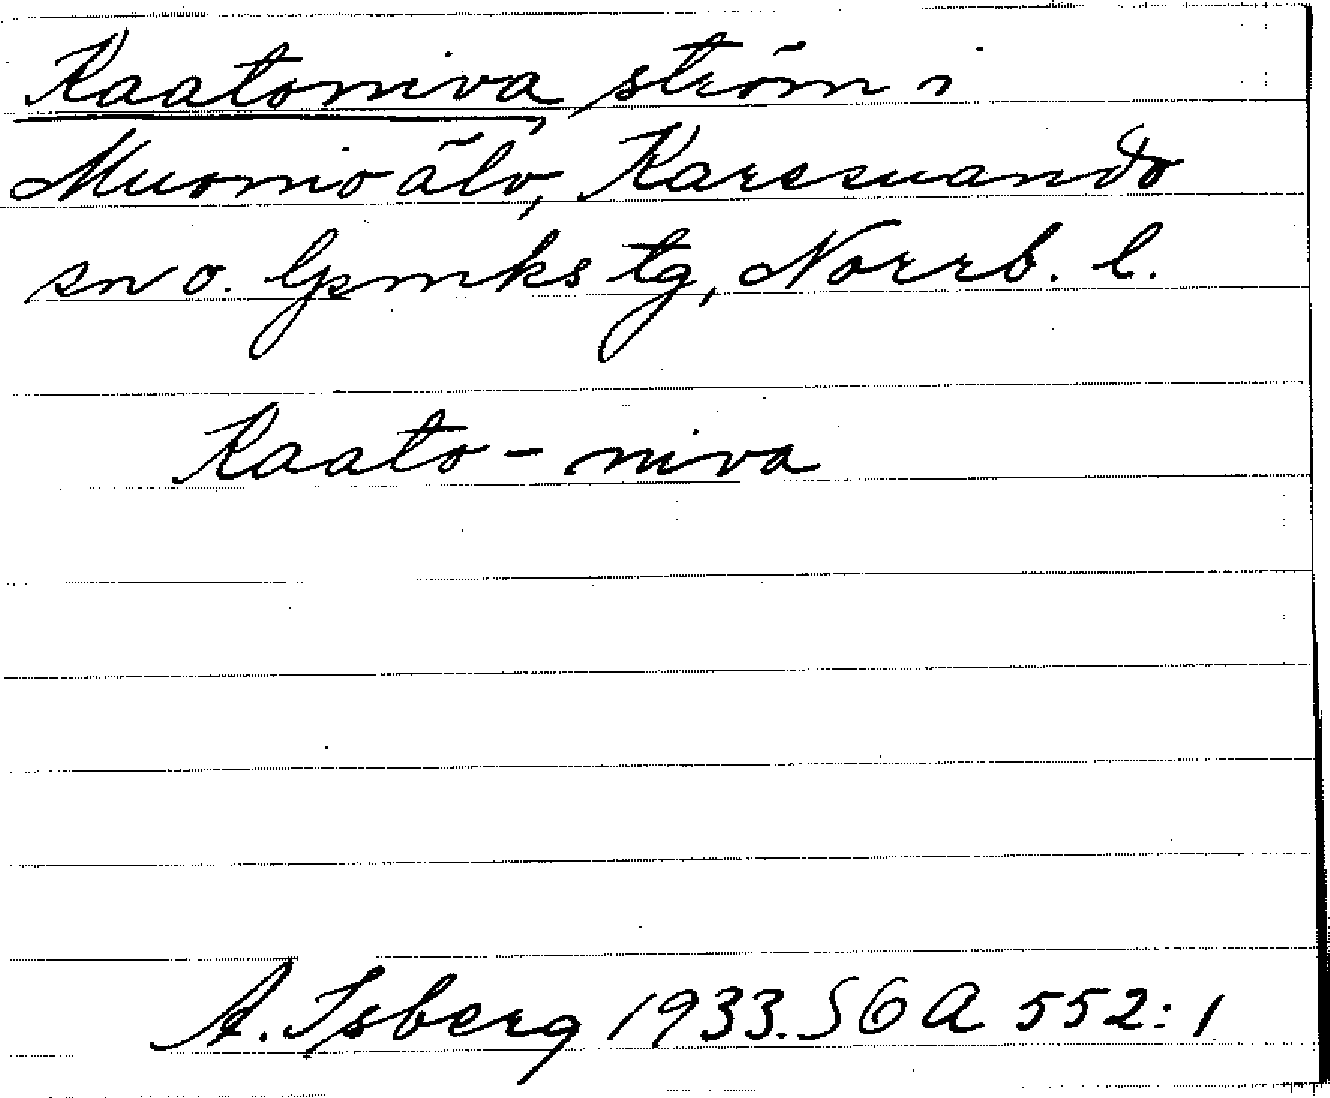 Kaatoniva, ström i
Muonio älv, Karesuando
sn o. lpmks tg, Norrb. l.
Kaato-niva
A. Isberg 1933. SOA 552:1